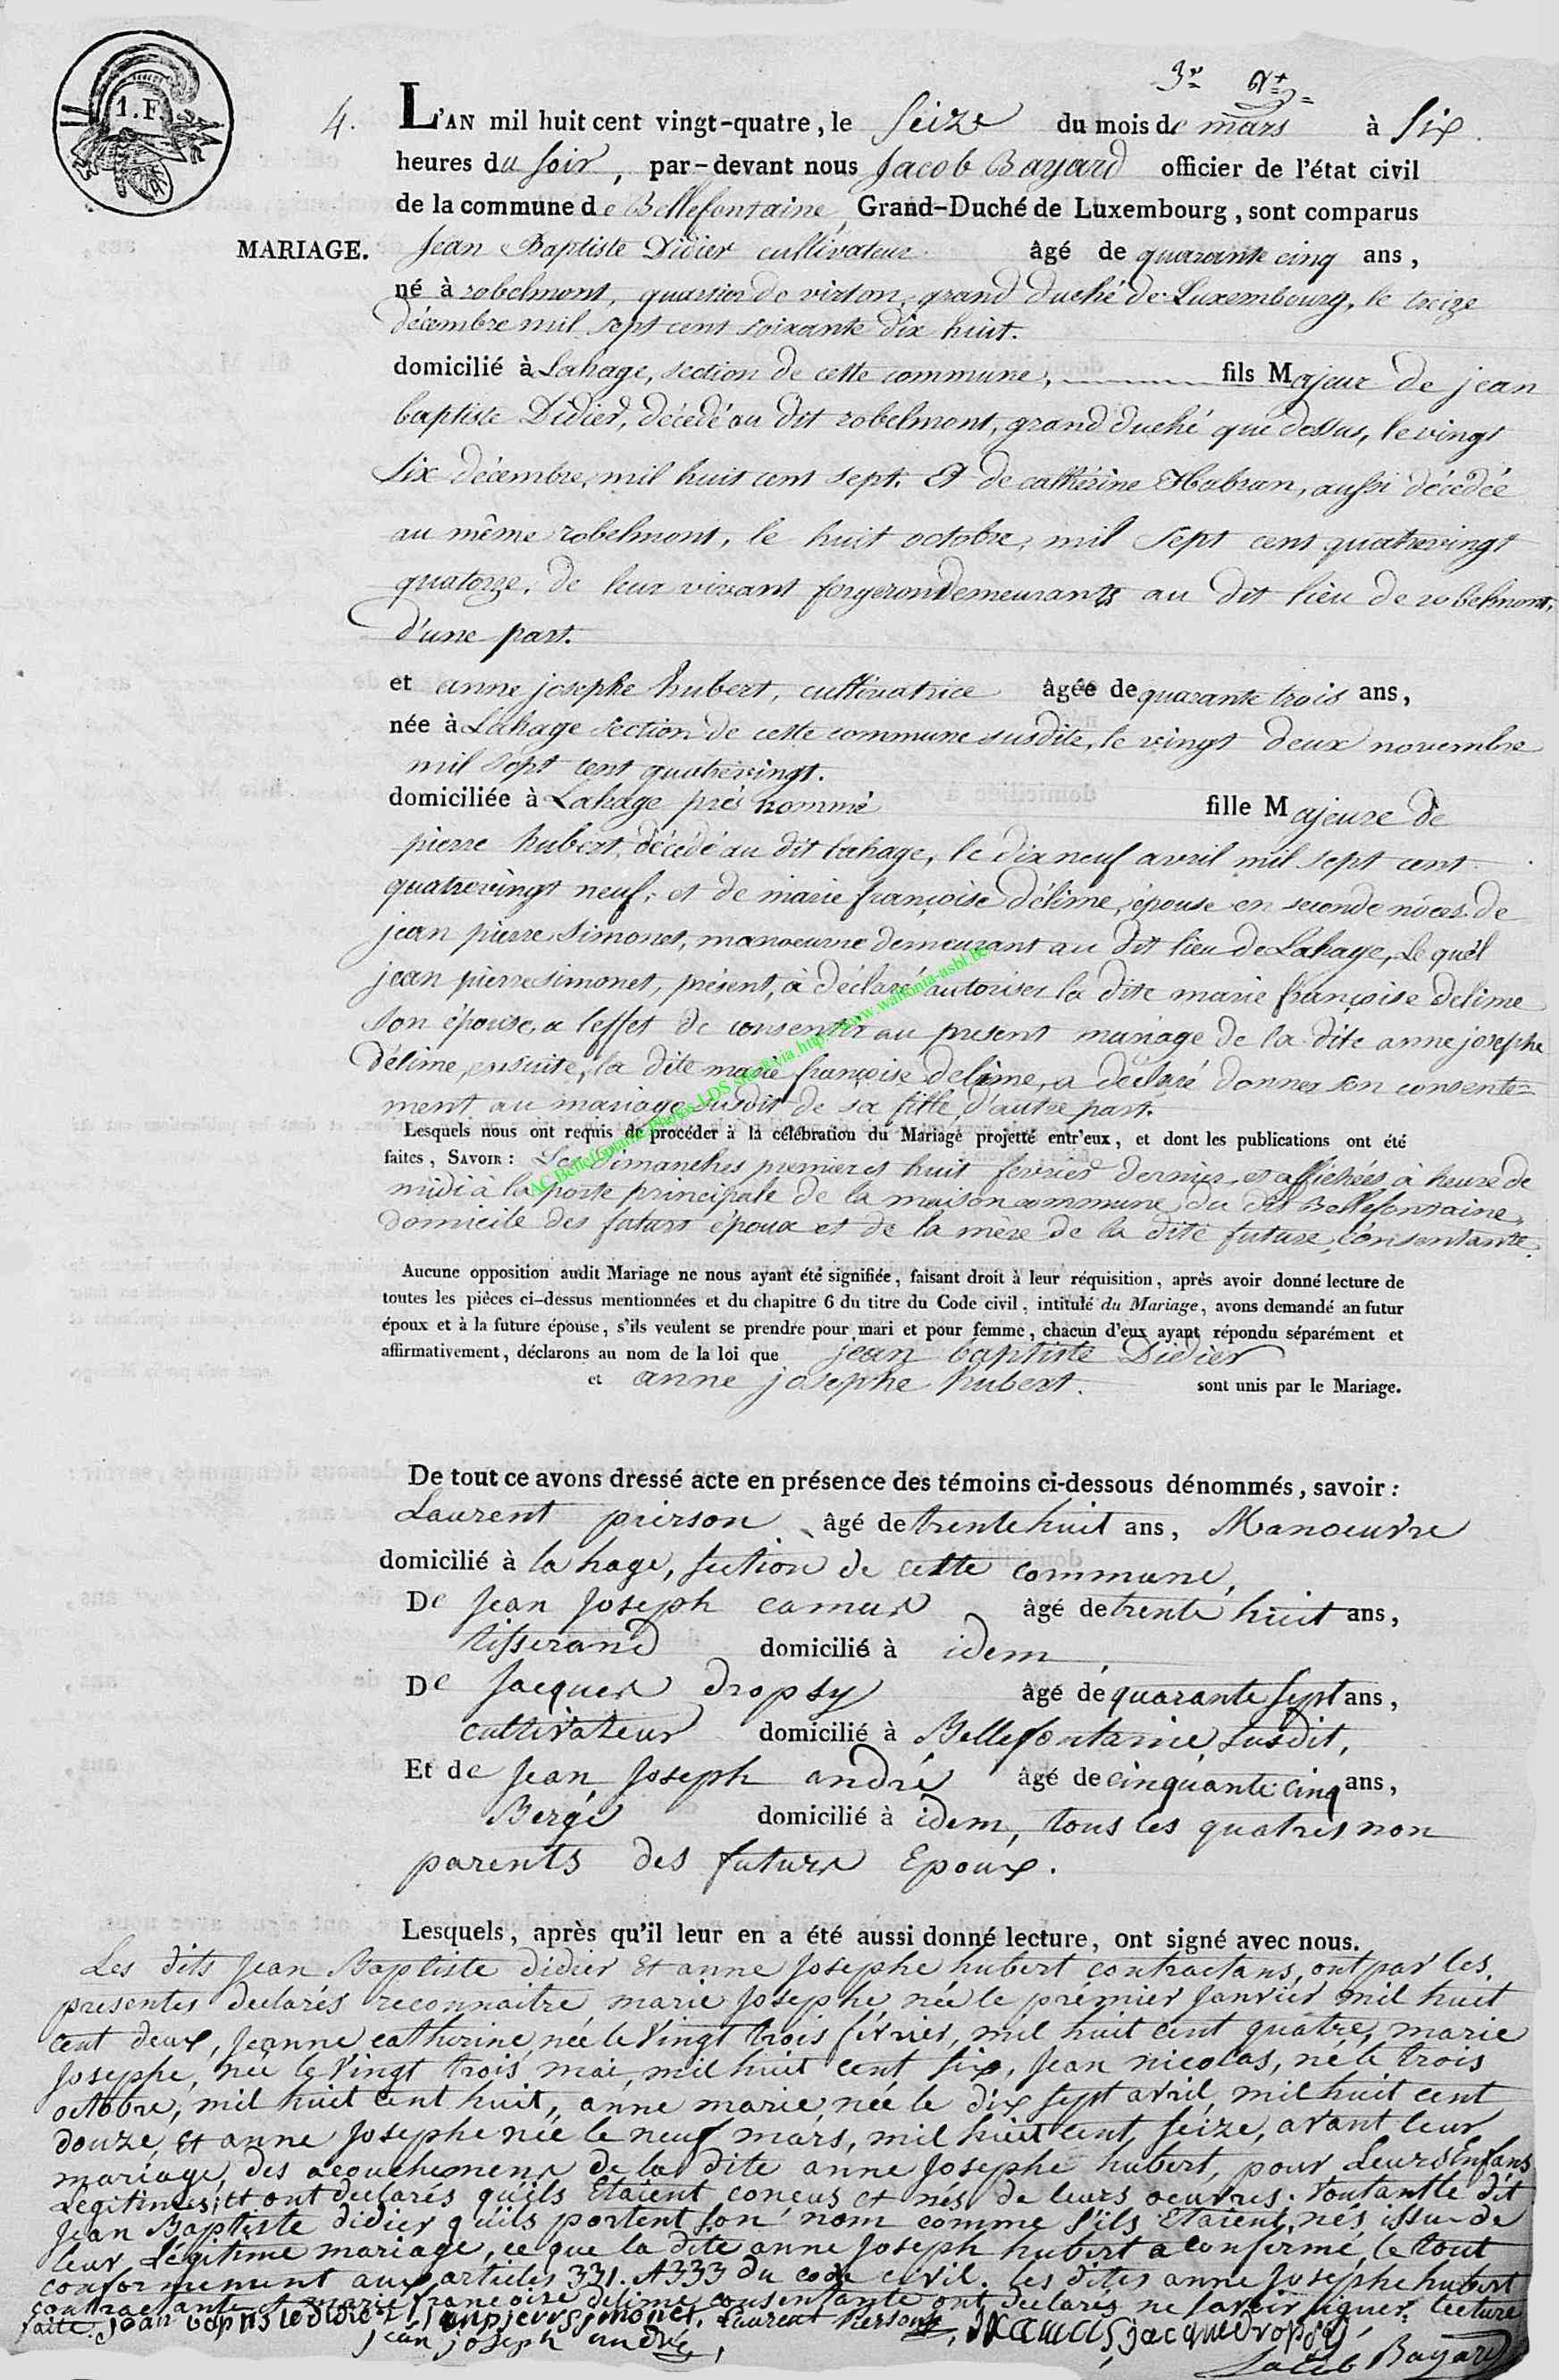 1. F.
3e Qt
4. L'AN mil huit cent vingt-quatre, le Seize du mois de mars à Six
heures du soir, par-devant nous Jacob Bayard officier de l'état civil
de la commune de Bellefontaine, Grand-Duché de Luxembourg, sont comparus
MARIAGE. Jean Baptiste Didier cultivateur âgé de quarante cinq ans,
né à robelmont, quartier de virton, grand duché de Luxembourg, le treize
décembre mil sept cent soixante dix huit.
domicilié à Lahage, section de cette commune, fils Majeur de jean
baptiste Didier, décédé au dit robelmont, grand duché que dessus, le vingt
six décembre, mil huit cent sept. Et de cathérine Habran, aussi décédée
au même robelmont, le huit octobre, mil sept cent quatrevingt
quatorze, de leur vivant forgeron demeurants au dit lieu de robelmont,
d'une part.
et anne josephe hubert, cultivatrice âgée de quarante trois ans,
née à Lahage section de cette commune susdite, le vingt deux novembre
mil sept cent quatrevingt.
domiciliée à Lahage près nommé fille Majeure de
pierre hubert, décédé au dit lahage, le dix neuf avril mil sept cent
quatrevingt neuf; et de marie françoise délime, épouse en seconde nôces de
jean pierre simonet, manoeuvre demeurant au dit lieu de Lahage, Le quel
jean pierre simonet, présent, à déclaré autoriser la dite marie françoise delime
son épouse, a l'effet de consentir au present mariage de la dite anne josephe
délime, ensuite, la dite marie françoise delime, a déclaré donner son consente=
ment au mariage susdit de sa fille, d'autre part.
AC Bellefontaine Photos LDS via http://www.wallonia-asbl.be
Lesquels nous ont requis de procéder à la célébration du Mariage projetté entr'eux, et dont les publications ont été
faites, SAVOIR : Les Dimanches premier et huit fevrier dernier, et affichées à heure de
midi à la porte principale de la maison commune du dit Bellefontaine,
domicile des futurs époux et de la mère de la dite future, consentante.
Aucune opposition audit Mariage ne nous ayant été signifiée, faisant droit à leur réquisition, après avoir donné lecture de
toutes les pièces ci-dessus mentionnées et du chapitre 6 du titre du Code civil, intitulé du Mariage, avons demandé an futur
époux et à la future épouse, s'ils veulent se prendre pour mari et pour femme, chacun d'eux ayant répondu séparément et
affirmativement, déclarons au nom de la loi que jean baptiste Didier
et anne josephe hubert. sont unis par le Mariage.
De tout ce avons dressé acte en présence des témoins ci-dessous dénommés, savoir :
Laurent pierson âgé de trente huit ans, Manoeuvre
domicilié à la hage, section de cette commune,
De Jean Joseph camus âgé de trente huit ans,
tisserand domicilié à idem,
De Jacques Dropsy âgé de quarante sept ans,
cultivateur domicilié à Bellefontaine, susdit,
Et de Jean Joseph andré âgé de cinquante cinq ans,
Bergé domicilié à idem, tous les quatres non
parents des futurs Epoux.
Lesquels, après qu'il leur en a été aussi donné lecture, ont signé avec nous.
Les dits Jean Baptiste didier Et anne Josephe hubert contractans, ont par les
presentes declarés reconnaitre marie Josephe, née le premier Janvier mil huit
cent deux, Jeanne catherine, née le Vingt trois février, mil huit cent quatre, marie
Josephe, née le Vingt trois mai, mil huit cent six, Jean nicolas, né le trois
octobre, mil huit cent huit, anne marie, née le dix sept avril, mil huit cent
douze, Et anne Josephe née le neuf mars, mil huit cent seize, avant leur
mariage, des acouchemens de la dite anne Josephe hubert, pour Leurs Enfans
Légitimes; et ont declarés qu'ils Etaient concus et nés de leurs oeuvres. Voutant le dit
Jean Baptiste didier qu'ils portent son nom comme s'ils Etaient nés issu de
leur Légitime mariage, ce que la dite anne Joseph hubert a confirmé, le tout
conformement aux articles 331. A 333 du code civil. les dites anne Josephe hubert
contractante et marie francoise delime consentante ont declarés ne savoir signer. lecture
faite. jean baptiste didier jeanpierre simonet. Laurent Pierson, JJ camus, jacque dropsy,
jean joseph andré,
Jacob Bayard